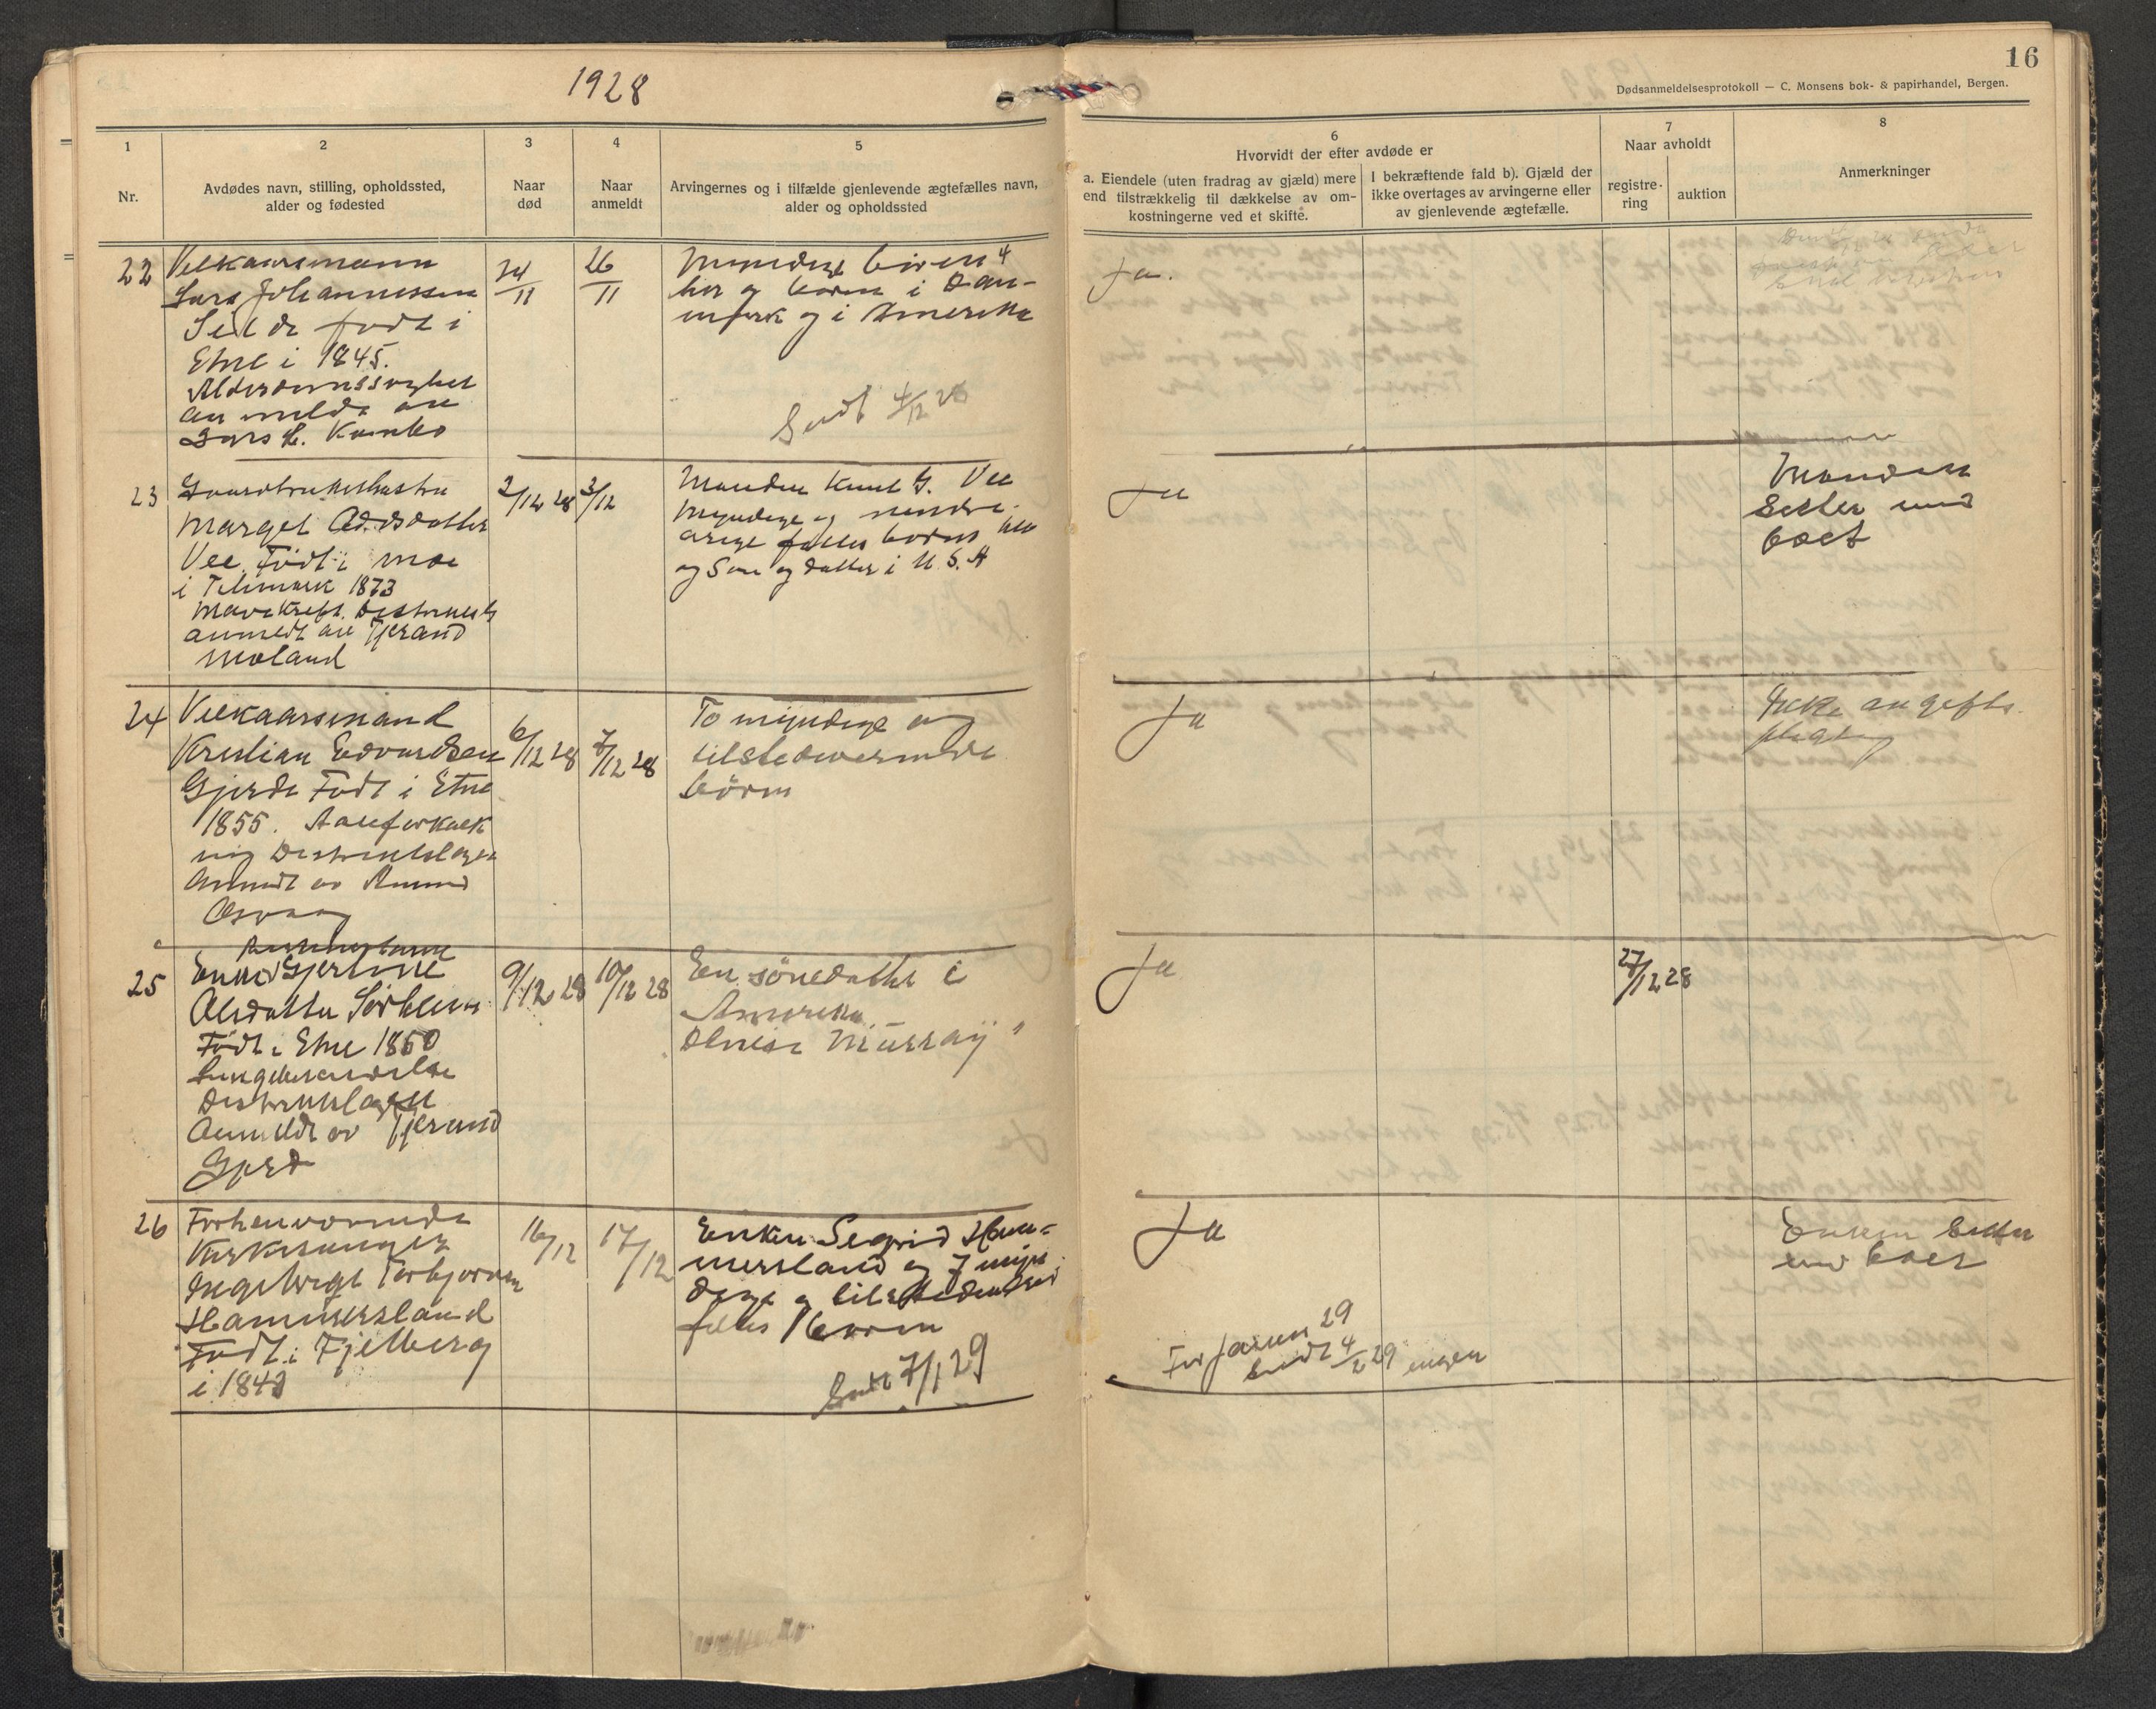 1928
16
Dødsanmeldelsesprotokoll — C. Monsens bok- & papirhandel, Bergen.
1
2
3
4
5
6
7
8
Nr.
Avdødes navn, stilling, opholdssted,
alder og fødested
Naar
død
Naar
anmeldt
Arvingernes og i tilfælde gjenlevende ægtefælles navn,
alder og opholdssted
Hvorvidt der efter avdøde er
a. Eiendele (uten fradrag av gjæld) mere
end tilstrækkelig til dækkelse av om-
kostningerne ved et skifte.
I bekræftende fald b). Gjæld der
ikke overtages av arvingerne eller
av gjenlevende ægtefælle.
Naar avholdt
registre-
ring
auktion
Anmerkninger
22
Velkaarsmann
Lars Johannessen
Silde født i
Etne i 1845.
Alderdomssvghet
anmeldt av
Lars H. Kambo
24/11
26/11
Myndige børn
her og børn i Dan-
mark og i Amerika
Sendt 4/12 28
Ja.
23
Margel
Vee. Født i Moe
i Telimark 1873
Mavekreft.
anmeldt av Tjerand
Moland
2/12 28
3/12
Manden Knut G. Vee
Myndige og mindre-
arige felles børn
og Søn og datter i U.S.A
Ja
Manden
Sitter med
boet
24
Velkaarsmand
Kristian Edvardsen
Gjerde Født i Etne
1855. Aareforkalk
ning Distriktslægen
Anmeldt av
6/12 28
7/12 28
To myndige og
tilstedeværende
børn
Ja
Ikke angifts
pligtig
25
Enke Gjertine
Olsdatter Sørheim
Født i Etne 1850
Lungebetendelse
Distriktslægen
Anmeldt av Tjerand
Gjerd
9/12 28
10/12 28
En sönedatter i
Amerika
Murray"
Ja
27/12 28
26
Forhenværende
Kirkesanger
Ingebrigt Torbjørnsen
Hammersland
Født i Fjelberg
i 1843
16/12
17/12
Enken Segrid Ham-
mersland og 7 myn
dige og tilstedeværend
felles børn
Sendt 7/1 29
Ja
For Januar 29
Sendt 4/2 29 ingen
Enken Sitter
med boet